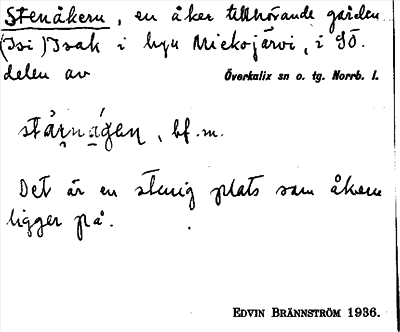 Stenåkern, en åker tillhörande gården
(Isi) Isak i byn Mickojärvi, i SÖ.
delen av Överkalix sn o. tg. Norrb. l.
bf. m.
Det är en stenig plats som åkern
ligger på.
EDVIN BRÄNNSTRÖM 1936.